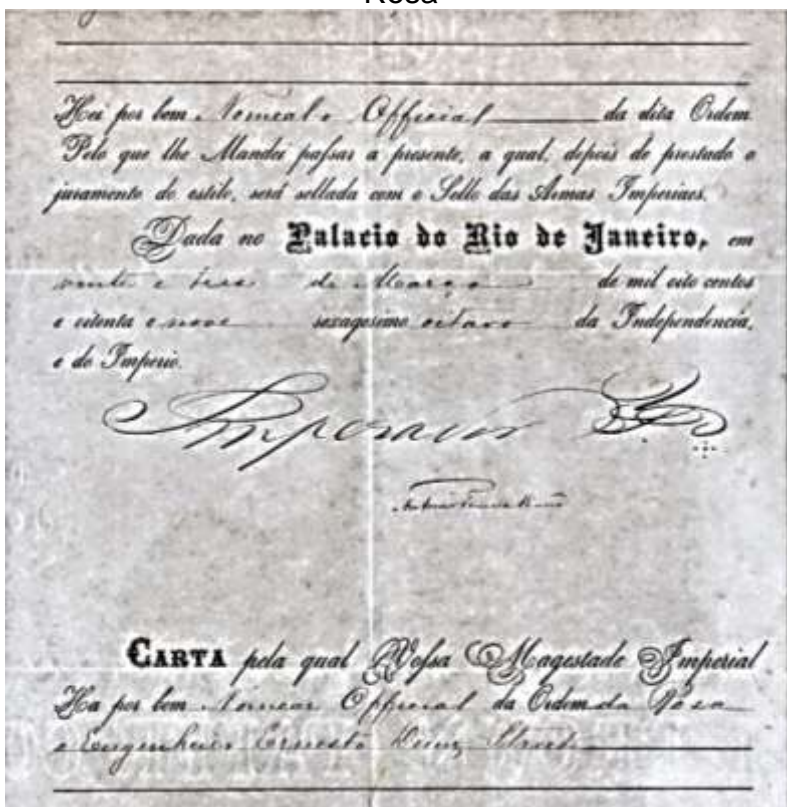 Rosa
Hei por bem Nomeal-o Official da dita Ordem
Pelo que lhe Mandei passar a presente, a qual, depois de prestado o
juramento do estilo, será sellada com o Sello das Armas Imperiaes.
Dada no Palacio do Rio de Janeiro, em
vinte e tres de Março de mil oito centos
e oitenta e nove sexagesimo oitavo da Independencia,
e do Imperio.
Imperador
CARTA pela qual Vossa Magestade Imperial
Ha por bem Nomear Official da Ordem da Rosa
o Engenheiro Ernesto Diniz Street